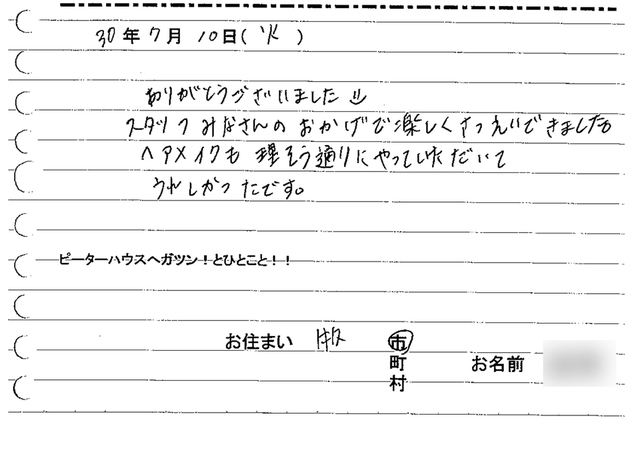 30年7月10日(火)
ありがとうございました
スタッフみなさんのおかげで楽しくさつえいできました。
ヘアメイクも理そう通りにやっていただいて
うれしかったです。
ピーターハウスへガツン!とひとこと!!
お住まい 市
町 お名前
村